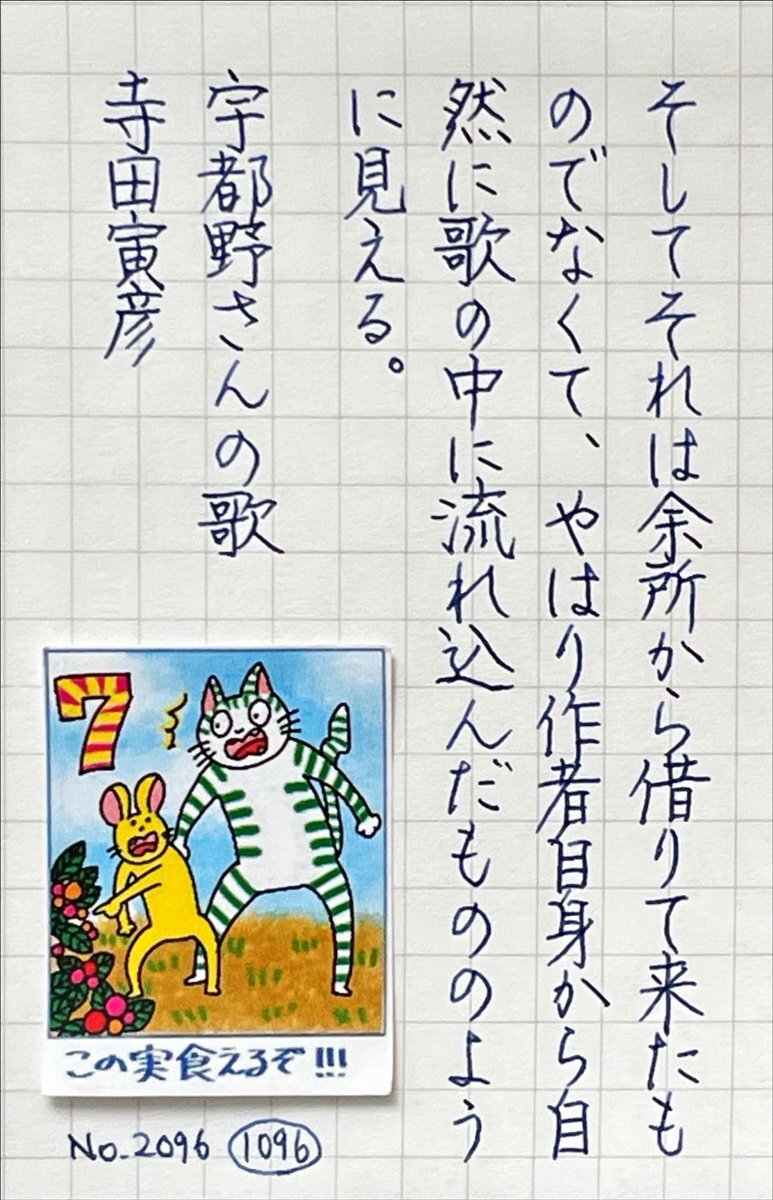 そしてそれは余所から借りて来たも
のでなくて、やはり作者自身から自
然に歌の中に流れ込んだもののよう
に見える。
宇都野さんの歌
寺田寅彦
7
この実食えるぞ!!!
No.2096 1096